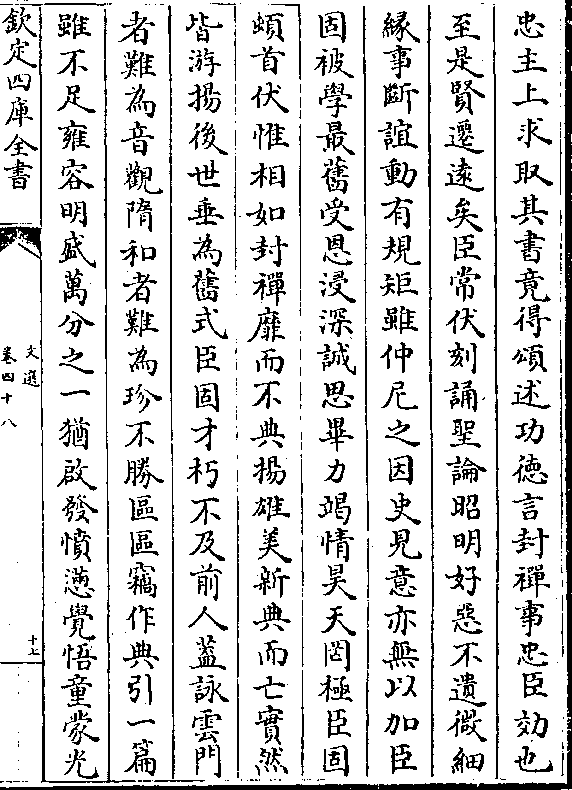 忠主上求取其書竟得頌述功徳言封禪事忠臣効也
至是賢遷逺矣臣常伏刻誦聖論昭明好惡不遺微細
縁事斷誼動有規矩雖仲尼之因史見意亦無以加臣
固被學最舊受恩浸深誠思畢力竭情昊天罔極臣固
頓首伏惟相如封禪靡而不典揚雄美新典而亡實然
皆游揚後世垂為舊式臣固才朽不及前人葢詠雲門
者難為音觀隋和者難為珍不勝區區竊作典引一篇
雖不足雍容明盛萬分之一猶啟發憤懣覺悟童蒙光
欽定四庫全書
文選
卷四十八
十七